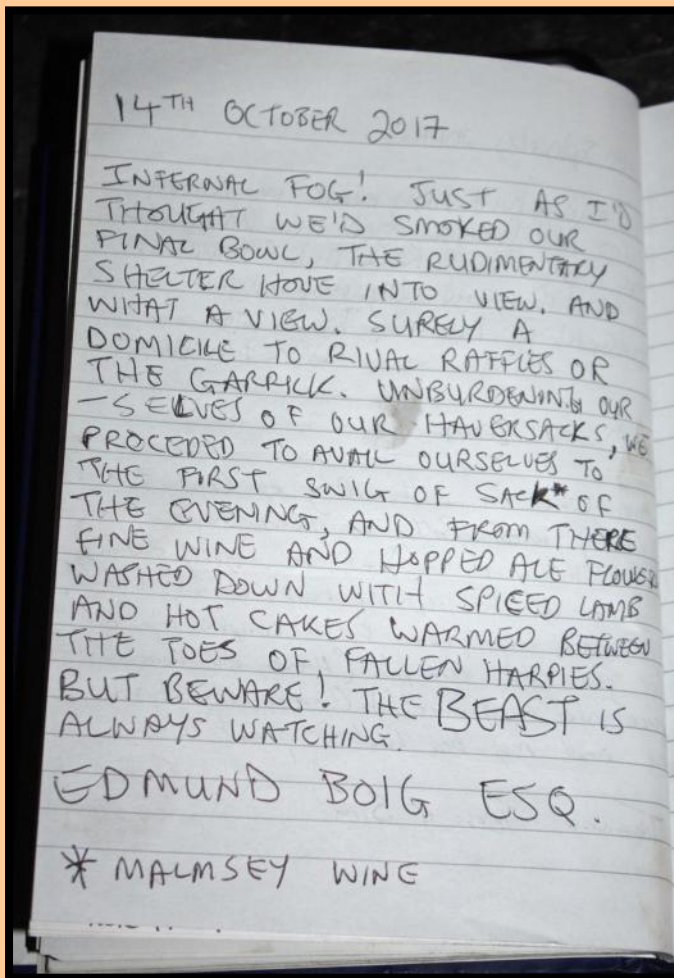 14TH OCTOBER 2017
INFERNAL FOG! JUST AS I'D
THOUGHT WE'D SMOKED OUR
FINAL BOWL, THE RUDIMENTARY
SHELTER HOVE INTO VIEW. AND
WHAT A VIEW. SURELY A
DOMICILE TO RIVAL RAFFLES OR
THE GARRICK. UNBURDENING OUR
-SELVES OF OUR HAVERSACKS, WE
PROCEDED TO AVAIL OURSELVES TO
THE FIRST SWIG OF SACK* OF
THE EVENING, AND FROM THERE
FINE WINE AND HOPPED ALE FLOWED
WASHED DOWN WITH SPICED LAMB
AND HOT CAKES WARMED BETWEEN
THE TOES OF FALLEN HARPIES.
BUT BEWARE! THE BEAST IS
ALWAYS WATCHING.
EDMUND BOIG ESQ.
* MALMSEY WINE